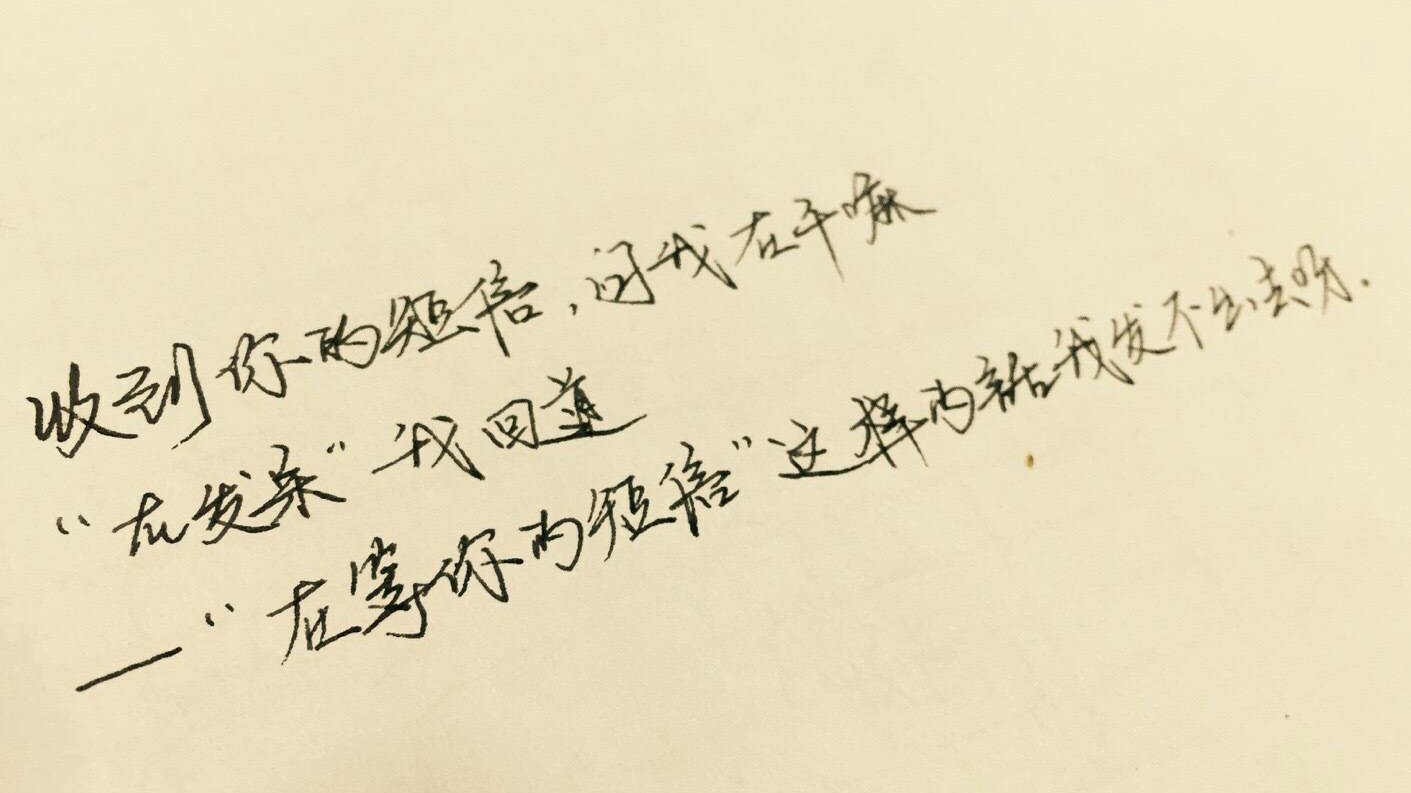 收到你的短信，问我在干嘛
“在发呆”我回道
—“在等你的短信”这样的话我发不出去呀.